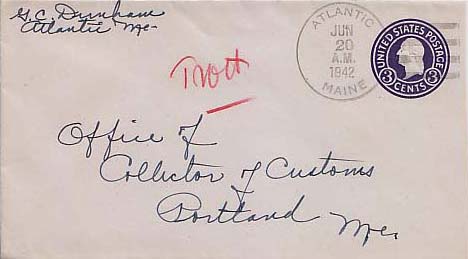 G. C. Dunham
Atlantic Me-
ATLANTIC
JUN
20
A.M.
1942
MAINE
UNITED STATES POSTAGE
3 CENTS 3
Trott
Office of
Collector of Customs
Portland Me.